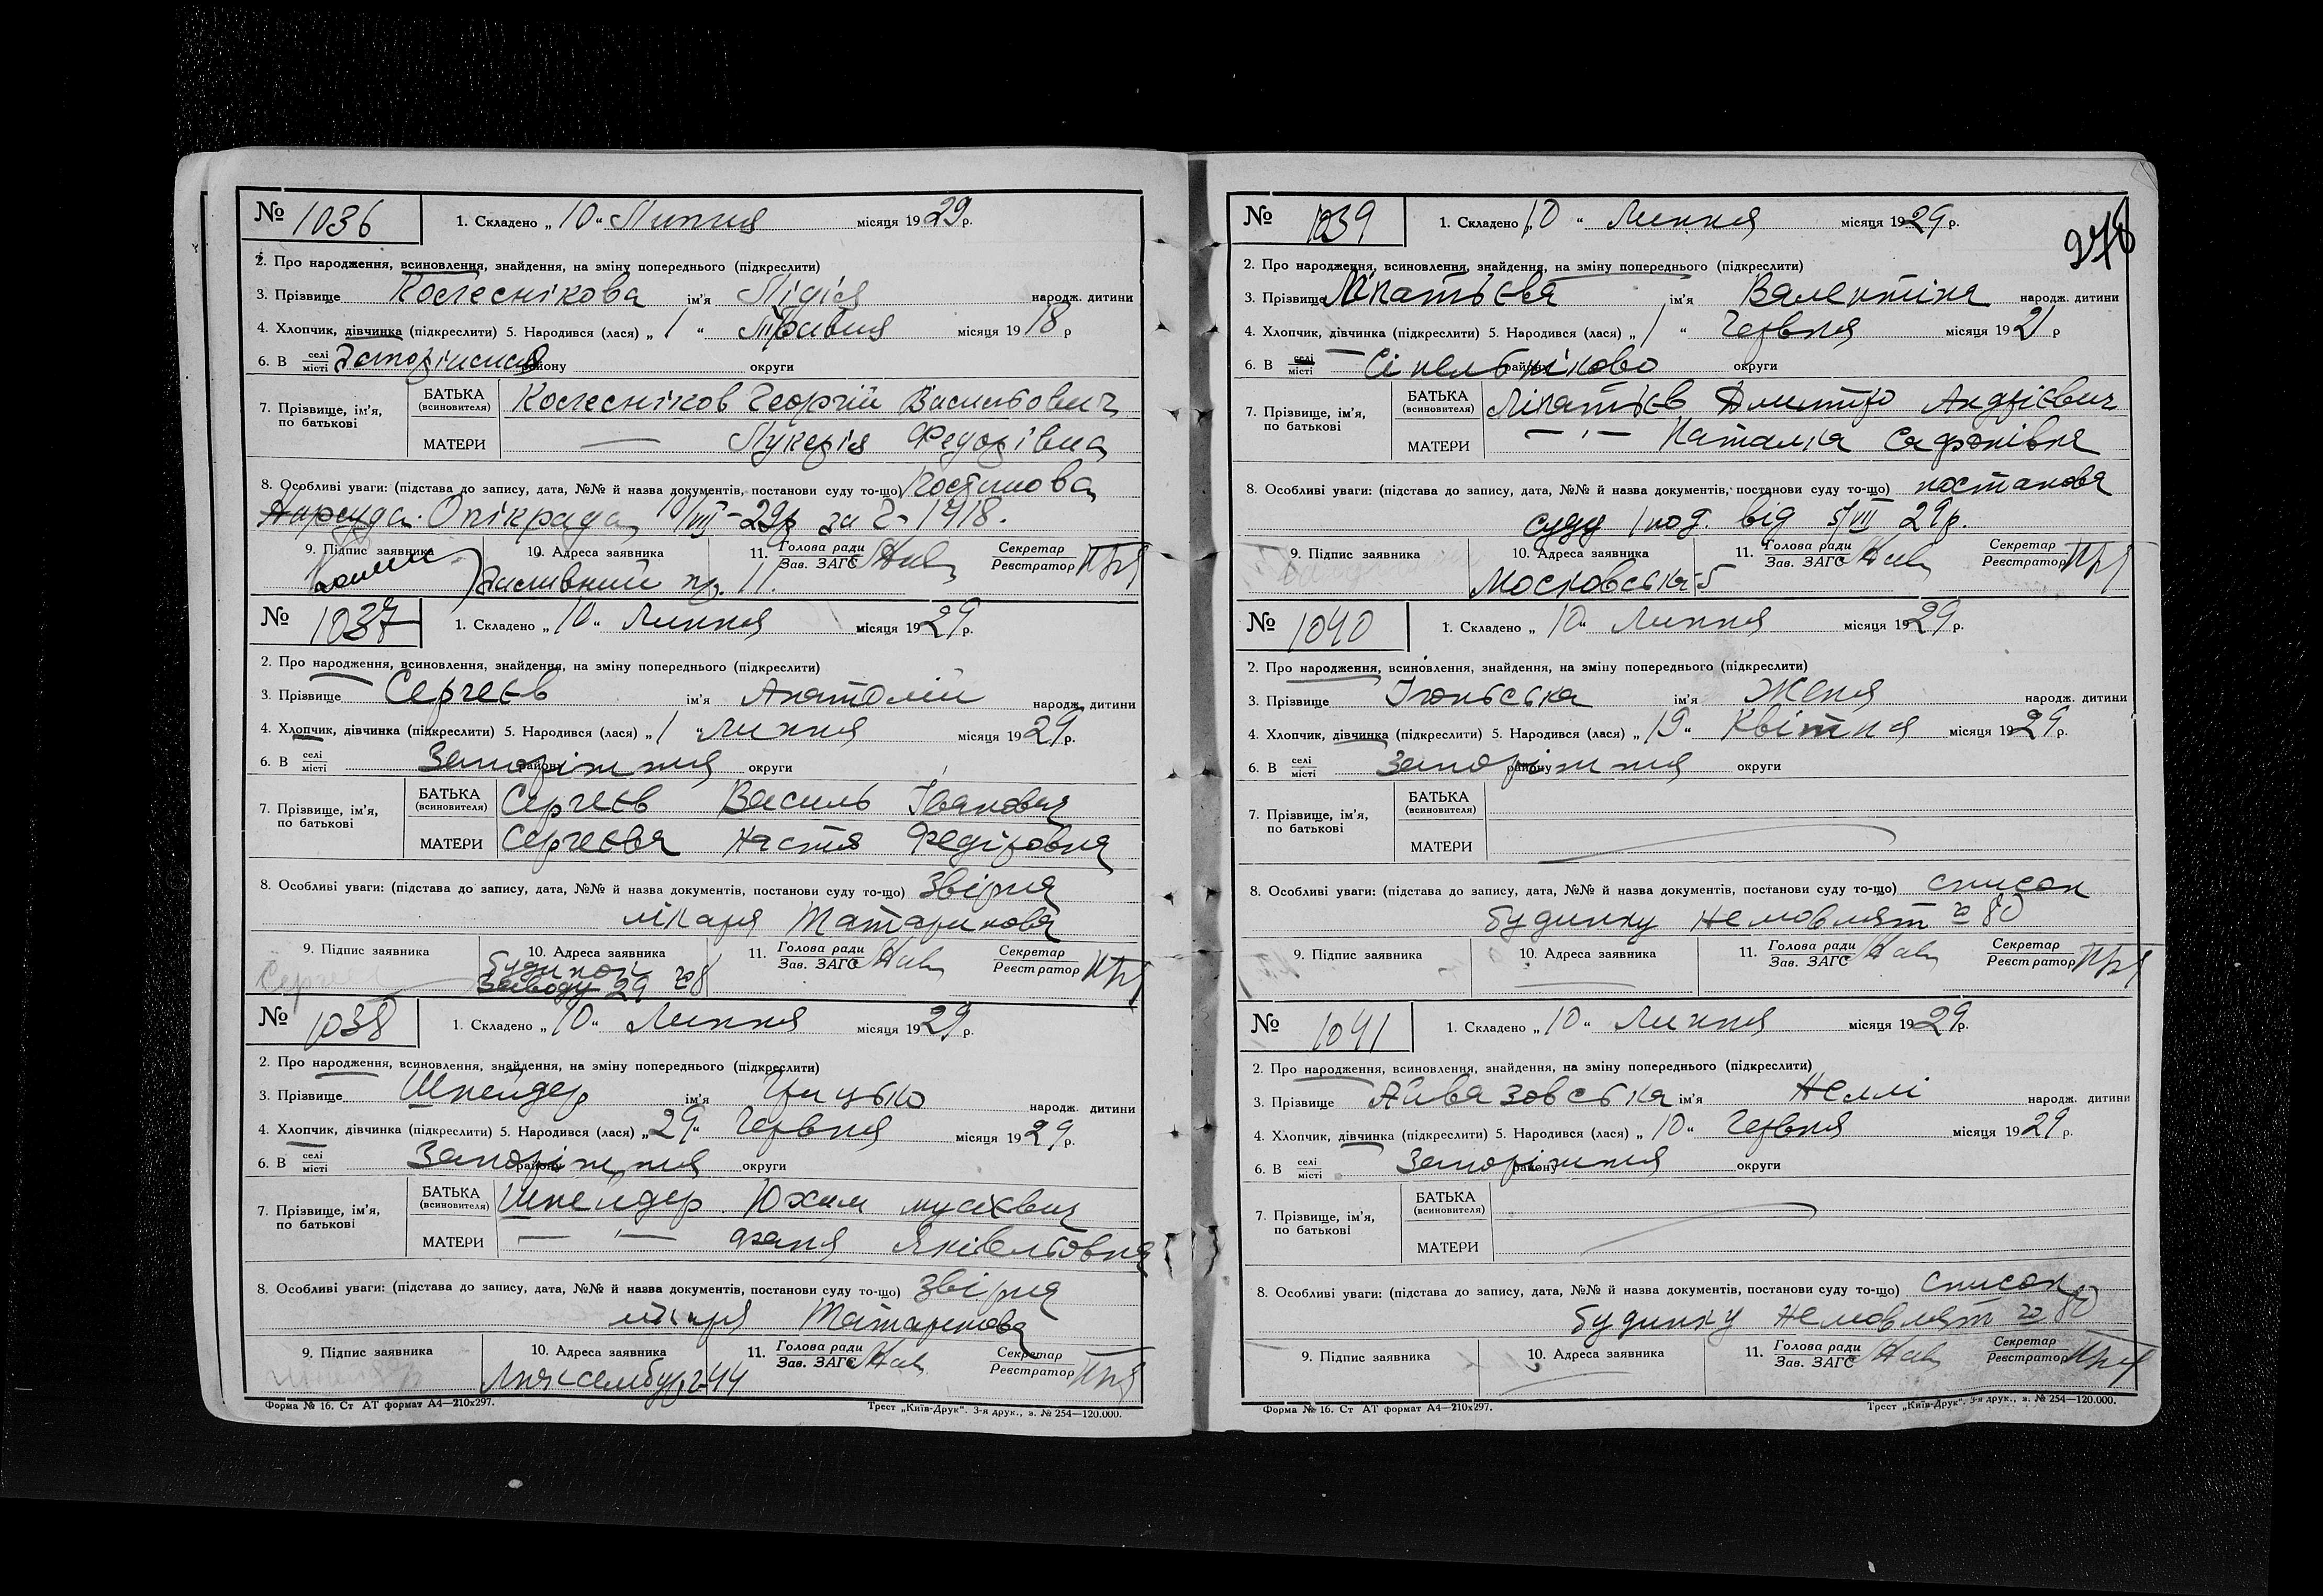 № 1036 1. Складено „ 10 “ Липня місяця 1929 р.
2. Про народження, всиновлення, знайдення, на зміну попереднього (підкреслити)
3. Прізвище Колеснікова ім'я Лідія народж. дитини
4. Хлопчик, дівчинка (підкреслити) 5. Народився (лася) „ 1 “ Травня місяця 1918 р
6. В селі місті Запоріжжя району округи
7. Прізвище, ім'я, по батькові
БАТЬКА (всиновителя) Колесніков Георгій Васильович
МАТЕРИ — Лукерія Федорівна
8. Особливі уваги: (підстава до запису, дата, №№ й назва документів, постанови суду то-що) Постанова
Нарсуда Опікрада 10/VII-29р за № 1718.
9. Підпис заявника 10. Адреса заявника 11. Голова ради Зав. ЗАГС Секретар Реєстратор
пр. 11.
№ 1037 1. Складено „ 10 “ Липня місяця 1929 р.
2. Про народження, всиновлення, знайдення, на зміну попереднього (підкреслити)
3. Прізвище Сергеєв ім'я Анатолій народж. дитини
4. Хлопчик, дівчинка (підкреслити) 5. Народився (лася) „ 1 “ Липня місяця 1929 р.
6. В селі місті Запоріжжя району округи
7. Прізвище, ім'я, по батькові
БАТЬКА (всиновителя) Сергеєв Василь Іванович
МАТЕРИ Сергеєва Настя Федіровна
8. Особливі уваги: (підстава до запису, дата, №№ й назва документів, постанови суду то-що) Звірня
лікаря Татаринова
9. Підпис заявника 10. Адреса заявника 11. Голова ради Зав. ЗАГС Секретар Реєстратор
Сергеев будинок
Заводу 29 № 8
№ 1038 1. Складено „ 10 “ Липня місяця 1929 р.
2. Про народження, всиновлення, знайдення, на зміну попереднього (підкреслити)
3. Прізвище Шнейдер ім'я Грицько народж. дитини
4. Хлопчик, дівчинка (підкреслити) 5. Народився (лася) „ 29 “ Червня місяця 1929 р.
6. В селі місті Запоріжжя району округи
7. Прізвище, ім'я, по батькові
БАТЬКА (всиновителя) Шнейдер Юхим Мусієвич
МАТЕРИ — ' — Фаня
8. Особливі уваги: (підстава до запису, дата, №№ й назва документів, постанови суду то-що) Звірня
лікаря Татаренова
9. Підпис заявника 10. Адреса заявника 11. Голова ради Зав. ЗАГС Секретар Реєстратор
44
Форма № 16. Ст АТ формат А4—210х297. Трест „Київ-Друк“. 3-я друк., з. № 254—120.000.
№ 1039 1. Складено „ 10 “ Липня місяця 1929 р.
278
2. Про народження, всиновлення, знайдення, на зміну попереднього (підкреслити)
3. Прізвище Ліпатьєва ім'я Валентіна народж. дитини
4. Хлопчик, дівчинка (підкреслити) 5. Народився (лася) „ 1 “ Червня місяця 1921 р
6. В селі місті Сінельніково району округи
7. Прізвище, ім'я, по батькові
БАТЬКА (всиновителя) Ліпатьєв Дмитро Андрієвич
МАТЕРИ — ' — Наталка Сафонівна
8. Особливі уваги: (підстава до запису, дата, №№ й назва документів, постанови суду то-що) постанова
суду 1 под. від 5/VII 29р.
9. Підпис заявника 10. Адреса заявника 11. Голова ради Зав. ЗАГС Секретар Реєстратор
Московська-5
№ 1040 1. Складено „ 10 “ Липня місяця 1929 р.
2. Про народження, всиновлення, знайдення, на зміну попереднього (підкреслити)
3. Прізвище Ігоньська ім'я Женя народж. дитини
4. Хлопчик, дівчинка (підкреслити) 5. Народився (лася) „ 19 “ Квітня місяця 1929 р.
6. В селі місті Запоріжжя району округи
7. Прізвище, ім'я, по батькові
БАТЬКА (всиновителя)
МАТЕРИ
8. Особливі уваги: (підстава до запису, дата, №№ й назва документів, постанови суду то-що) список
будинку Немовлят № 80
9. Підпис заявника 10. Адреса заявника 11. Голова ради Зав. ЗАГС Секретар Реєстратор
№ 1041 1. Складено „ 10 “ Липня місяця 1929 р.
2. Про народження, всиновлення, знайдення, на зміну попереднього (підкреслити)
3. Прізвище Айвазовська ім'я Неллі народж. дитини
4. Хлопчик, дівчинка (підкреслити) 5. Народився (лася) „ 10 “ Червня місяця 1929 р.
6. В селі місті Запоріжжя району округи
7. Прізвище, ім'я, по батькові
БАТЬКА (всиновителя)
МАТЕРИ
8. Особливі уваги: (підстава до запису, дата, №№ й назва документів, постанови суду то-що) список
будинку Немовлят № 80
9. Підпис заявника 10. Адреса заявника 11. Голова ради Зав. ЗАГС Секретар Реєстратор
Форма № 16. Ст АТ формат А4—210х297. Трест „Київ-Друк“. 3-я друк., з. № 254—120.000.